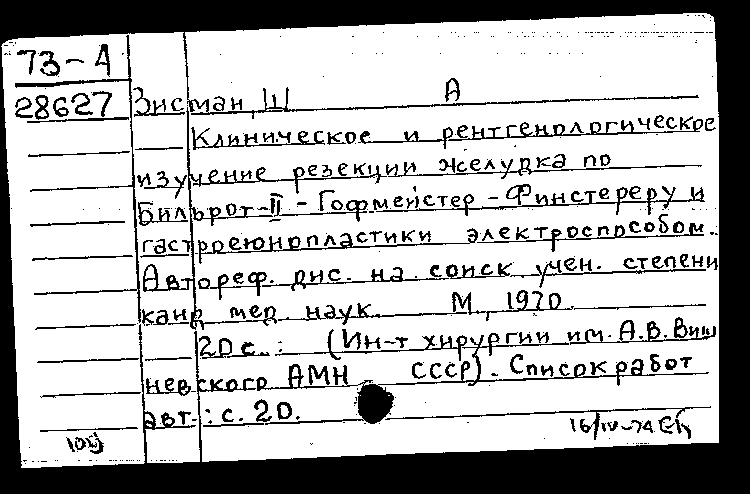 73-А
28627 Зисман, Ш А
Клиническое и рентгенологическое
изучение резекции желудка по
Бильрот-II - Гофмейстер - Финстереру и
гастроеюнопластики электроспособом.
Автореф. дис. на соиск учен. степени
канд мед наук. М., 1970.
20 с.: (Ин-т хирургии им. А.В. Виш
невского АМН СССР). Список работ
авт.: с. 20.
16/IV-74